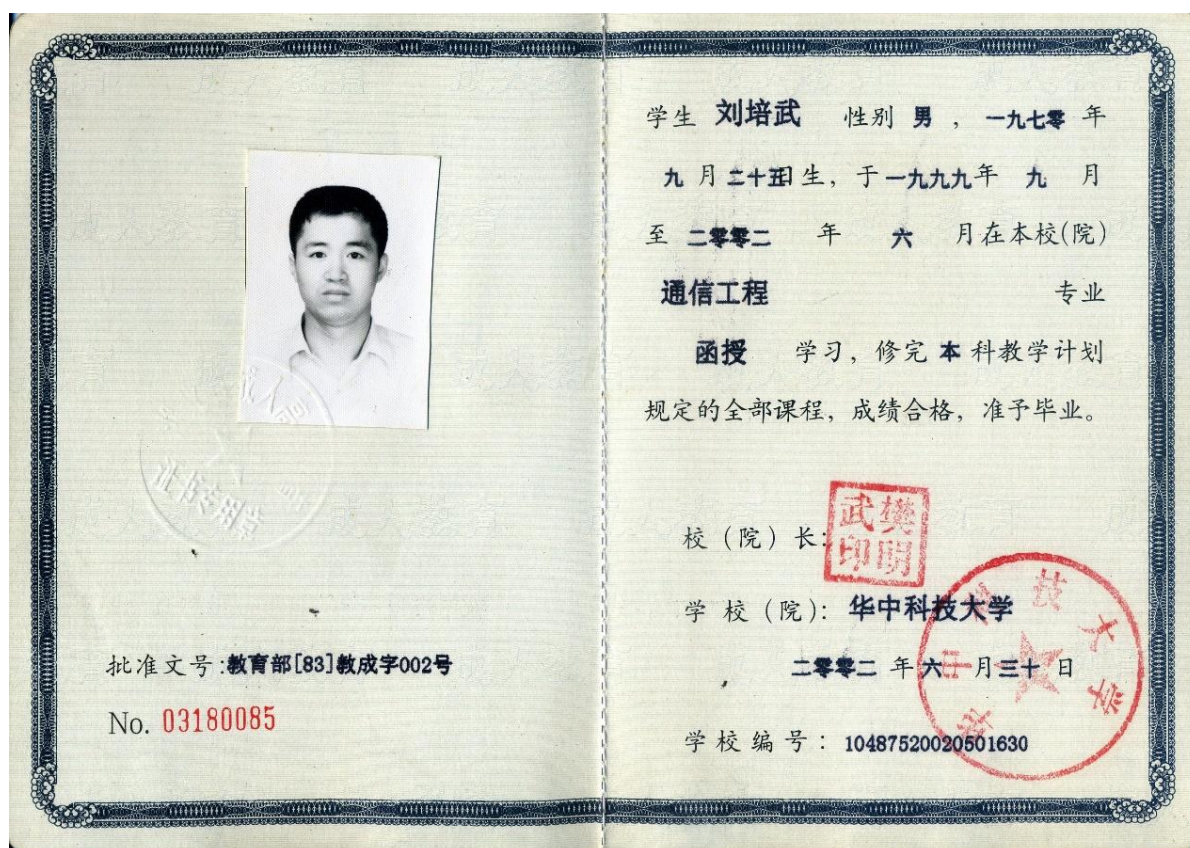 证书专用章
批准文号:教育部[83]教成字002号
No. 03180085
学生 刘培武 性别 男 , 一九七零 年
九 月 二十五日 生, 于 一九九九 年 九 月
至 二零零二 年 六 月在本校(院)
通信工程 专业
函授 学习, 修完 本 科教学计划
规定的全部课程, 成绩合格, 准予毕业。
校 (院) 长:
樊明武印
学 校 (院): 华中科技大学
二零零二 年 六 月 三十 日
学 校 编 号 : 10487520020501630
华中科技大学